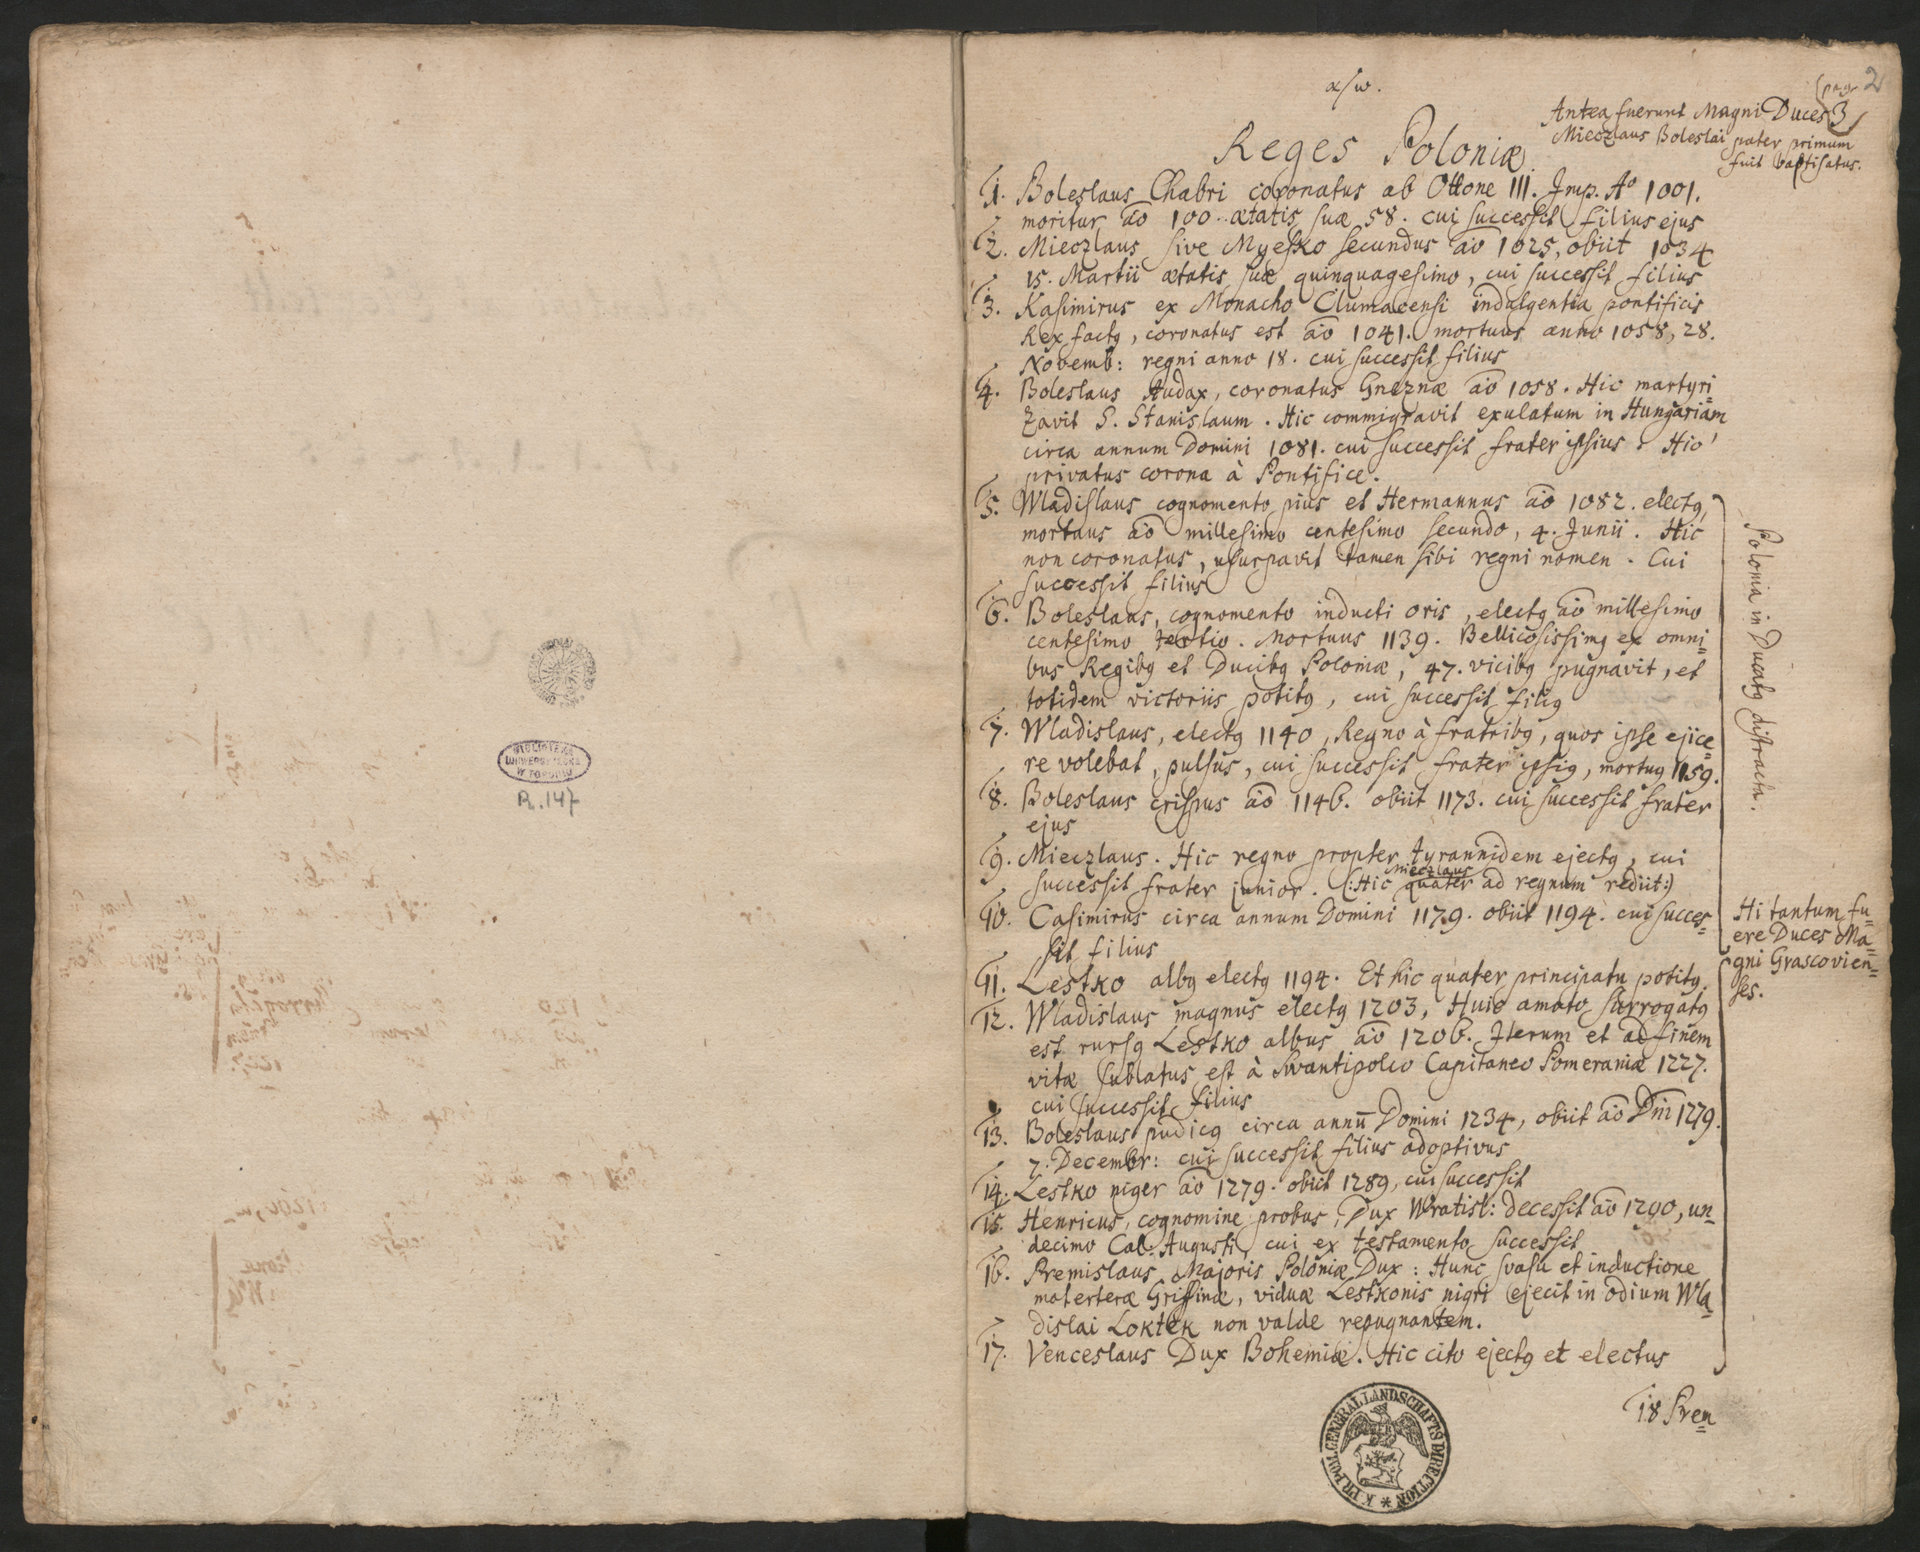 BIBLIOTEKA
UNIWERSYTECKA
W TORUNIU
R. 147
α/ω.
(pag 2
3
Antea fuerunt Magni Duces
Mieczlaus Boleslai pater primum
fuit baptisatus.
Reges Poloniæ
1. Boleslaus Chabri coronatus ab Ottone III. Imp. Aº 1001.
moritur aō 100.. ætatis suæ 58. cui successit filius ejus
2. Mieczlaus sive Myesko secundus aō 1025, obiit 1034
15. Martii ætatis suæ quinquagesimo, cui successit filius
3. Kasimirus ex Monacho Clumacensi indulgentia pontificis
Rex factꝰ, coronatus est aō 1041. mortuus anno 1058, 28.
Novemb: regni anno 18. cui successit filius
4. Boleslaus Audax, coronatus Gneznæ aō 1058. Hic martyri=
zavit S. Stanislaum. Hic commigravit exulatum in Hungariam
circa annum Domini 1081. cui successit frater ipsius. Hic
privatus corona à Pontifice.
5. Wladislaus cognomento pius et Hermannus aō 1082. electꝰ,
mortuus aō millesimo centesimo secundo, 4. Junii. Hic
non coronatus, usurpavit tamen sibi regni nomen. Cui
successit filius
6. Boleslaus, cognomento inducti oris, electꝰ aō millesimo
centesimo tertio. Mortuus 1139. Bellicosissimꝰ ex omni=
bus Regibꝰ et Ducibꝰ Poloniæ, 47. vicibꝰ pugnavit, et
totidem victoriis potitꝰ, cui successit filiꝰ
7. Wladislaus, electꝰ 1140, Regno à fratribꝰ, quos ipse ejice=
re volebat, pulsus, cui successit frater ipsiꝰ, mortuꝰ 1159.
8. Boleslaus crispus aō 1146. obiit 1173. cui successit frater
ejus
9. Mieczlaus. Hic regno propter tyrannidem ejectꝰ, cui
successit frater junior. (:Hic Mieczlaus quater ad regnum rediit:)
10. Casimirus circa annum Domini 1179. obiit 1194. cui succes=
sit filius
11. Lestko albꝰ electꝰ 1194. Et hic quater principatu potitꝰ.
12. Wladislaus magnus electꝰ 1203, Huic amoto surrogatꝰ
est rursꝰ Lestko albus aō 1206. Iterum et ad finem
vitæ sublatus est à Swantipolco Capitaneo Pomeraniæ 1227.
cui successit filius
13. Boleslaus pudicꝰ circa annū Domini 1234, obiit aō Dn̄i 1279.
7. Decembr: cui successit filius adoptivus
14. Lestko niger aō 1279. obiit 1289, cui successit
15. Henricus, cognomine probus, Dux Wratisl: decessit aō 1290, un=
decimo Cal: Augusti, cui ex testamento successit
16. Premislaus Majoris Poloniæ Dux: Hunc svasu et inductione
materteræ Griffinæ, viduæ Lestkonis nigri ejecit in odium Wla=
dislai Loktek non valde repugnantem.
17. Venceslaus Dux Bohemiæ. Hic cito ejectꝰ et electus
18 Prem=
Polonia in Ducatꝰ distracta.
Hi tantum fu=
ere Duces Ma=
gni Grascovien=
ses.
K. PR. POM. GENERAL LANDSCHAFTS DIRECTION